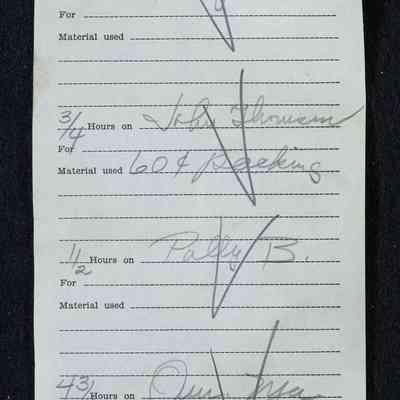 For
Material used
3/4 Hours on John Thomson
For
Material used 60¢ packing
1/2 Hours on Polly B.
For
Material used
Hours on